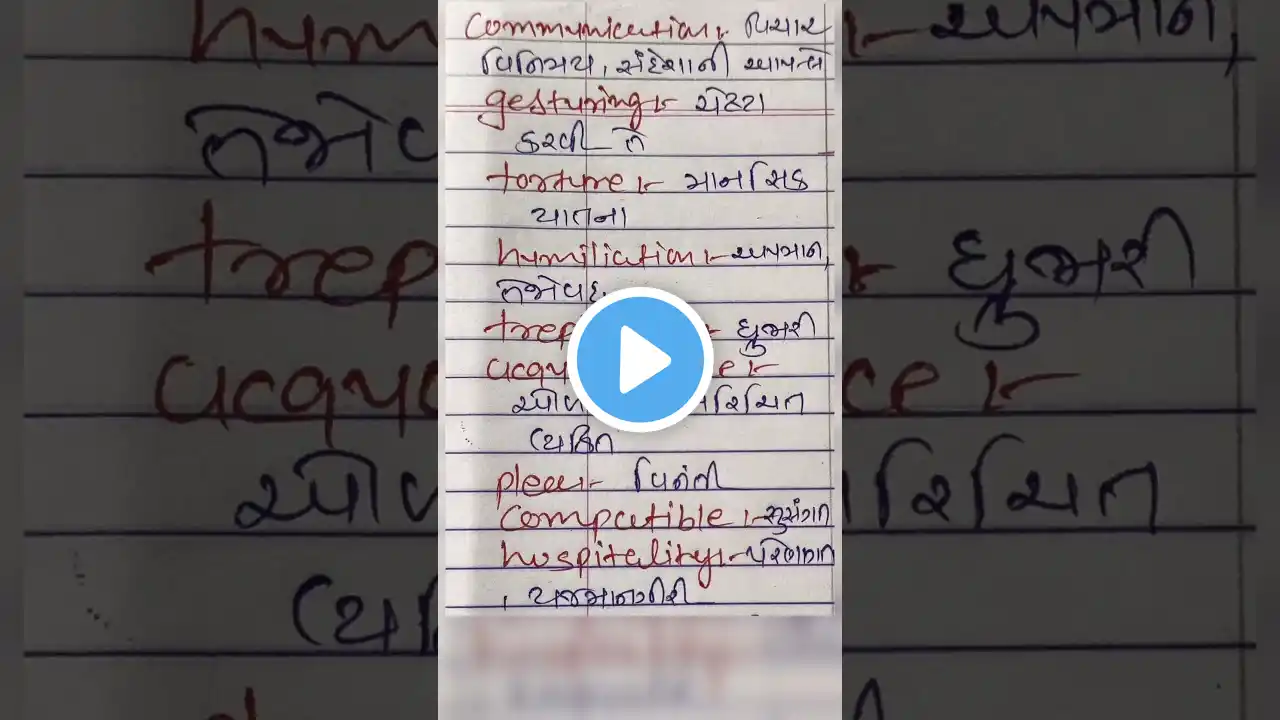 Communication :- વિચાર
વિનિમય, સંદેશાની આપલે
gesturing :- ચેષ્ટા
કરવી તે
torture :- માનસિક
યાતના
humiliation :- અપમાન,
trep ધ્રુજારી
acqu e :-
ઓળ રિચિત
વ્યક્તિ
plea :- વિનંતી
Compatible :- સુસંગત
hospitality :-
, યજમાનગીરી